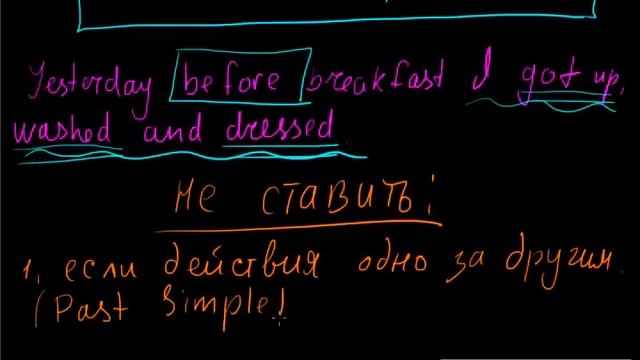 Yesterday before breakfast I got up,
washed and dressed.
Не ставить:
1. если действия одно за другим.
(Past Simple!